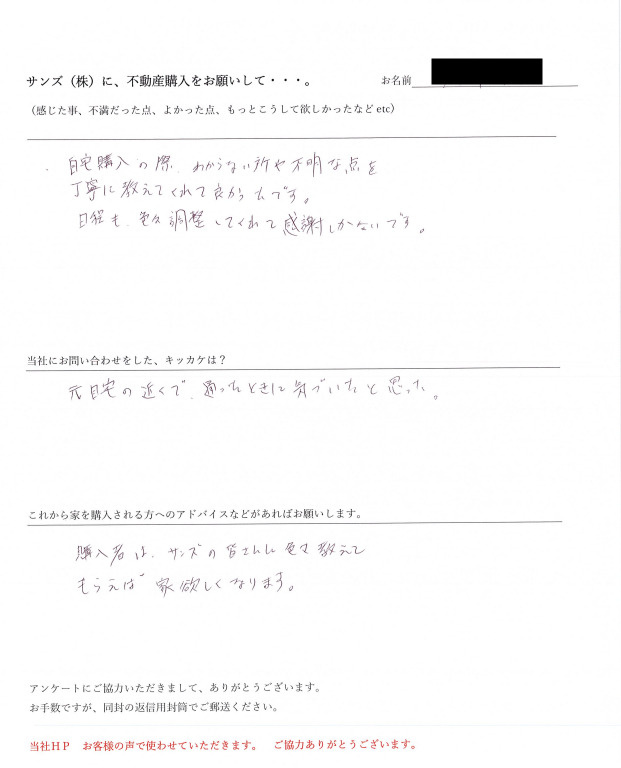 サンズ（株）に、不動産購入をお願いして・・・。
お名前
（感じた事、不満だった点、よかった点、もっとこうして欲しかったなど etc）
・自宅購入の際、わからない所や不明な点を
丁寧に教えてくれて良かったです。
日程も、色々調整してくれて感謝しかないです。
当社にお問い合わせをした、キッカケは？
元自宅の近くで、通ったときに気づいたと思った。
これから家を購入される方へのアドバイスなどがあればお願いします。
購入者は、サンズの皆さんに色々教えて
もらえば家欲しくなります。
アンケートにご協力いただきまして、ありがとうございます。
お手数ですが、同封の返信用封筒でご郵送ください。
当社ＨＰ　お客様の声で使わせていただきます。　ご協力ありがとうございます。